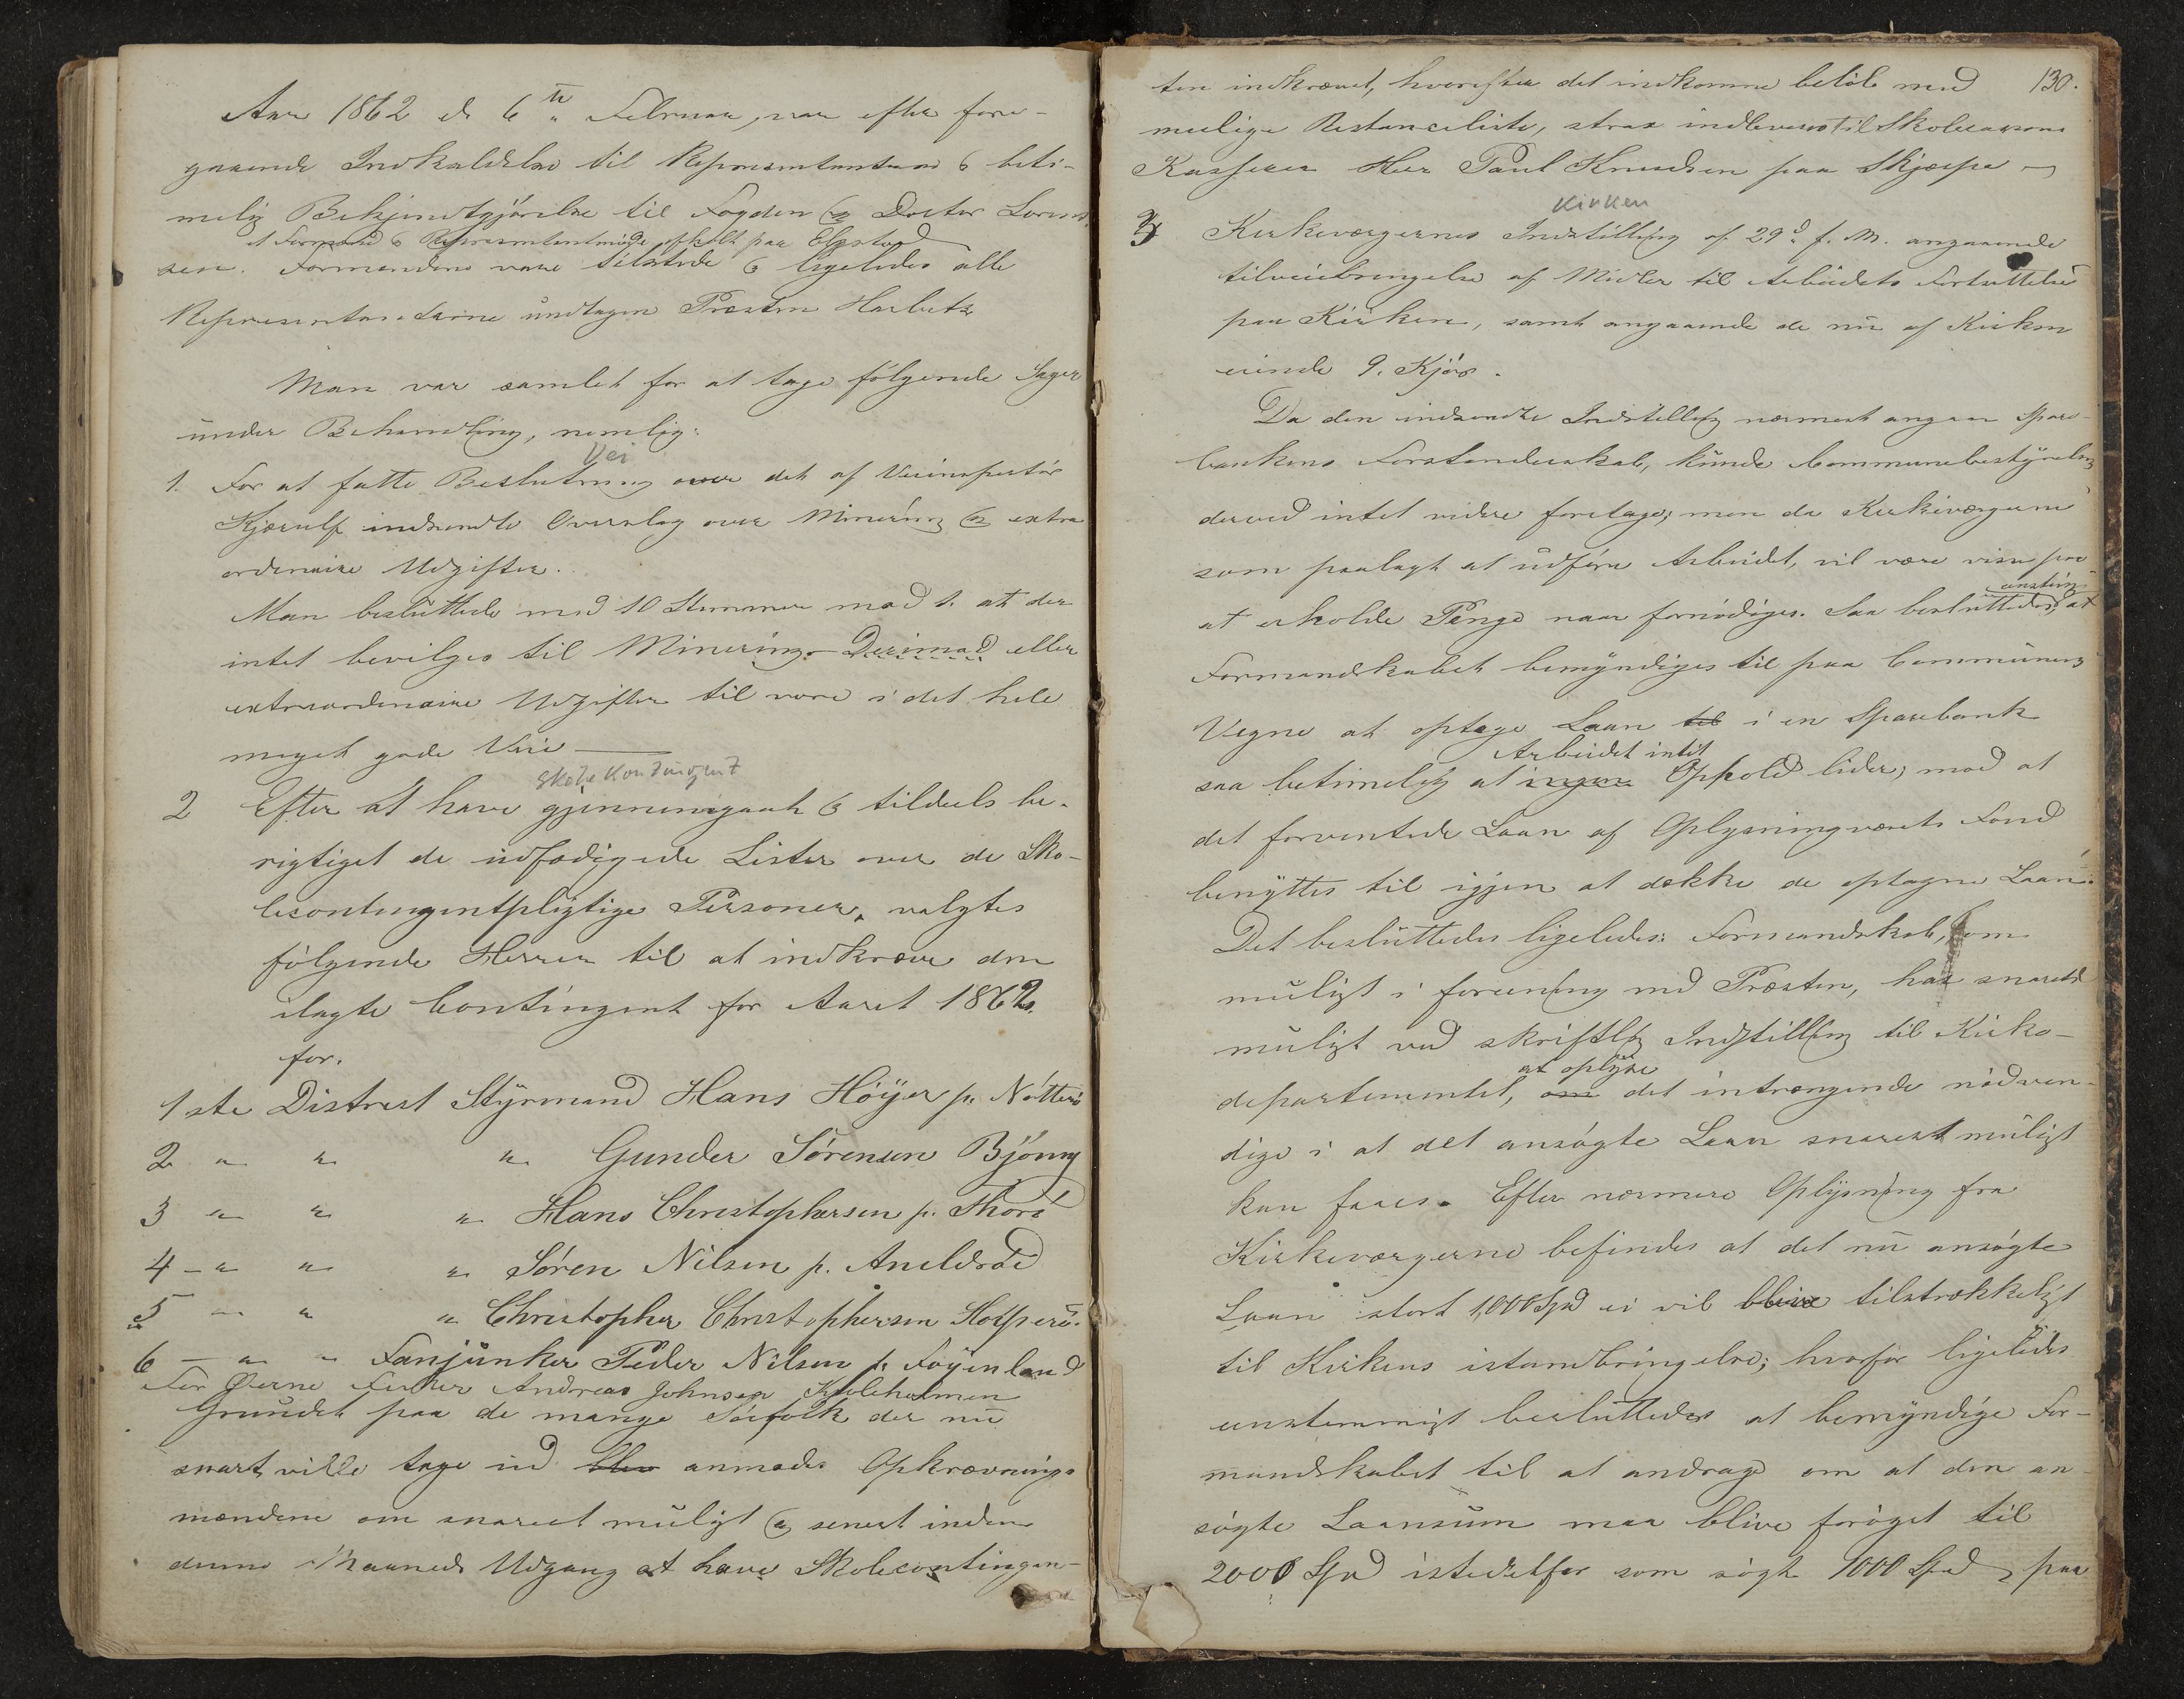 Aar 1862 d. 6te Februar, var efter fore-
gaaende Indkaldelse til Repræsentanterne & beti-
melig Bekjendtgjörelse til Fogden og Doctor Lorent-
et Formand & Repræsentantmöde afholt paa Elgestad
sen. Formændene vare tilstede & ligeledes alle
Repræsentanterne undtagen Præsten Harbitz
Man var samlet for at tage fölgende Sager
under Behandling, nemlig:
Vei
1. For at fatte Beslutning over det af Veiinspectör
Kjærulf indsendte Overslag over Minering og extra
ordinaire Udgifter.
Man besluttede med 10 Stemmer mod 1. at der
intet bevilges til Minering. Derimod eller
extraordinaire Udgifter til vore i det hele
meget gode Veie
Skolekontingent
2 Efter at have gjennemgaat & tildeels be-
rigtiget de udfærdigede Lister over de Sko-
lecontingentpligtige Personer, valgtes
fölgende Herrer til at indkræve den
ilagte Contingent for Aaret 1862.
for.
1ste District Styrmand Hans Höyer p. Nötterö
2 " " " Gunder Sörensen Bjönnes
3 " " " Hans Christophersen p. Thorö
4 " " " Sören Nilsen p. Aneldröd
5 " " " Christopher Christophersen
6 " " Fanjunker Peder Nilsen p. Föyenland
For Öerne Fisker Andreas Johnsen Kjoleholmen
Grundet paa de mange Söefolk der nu
snart ville tage ud blev anmodes Opkrævnings
mændene om snarest muligt og senest inden
denne Maaneds Udgang at have Skolecontingen-
130.
ten indkrævet, hvorefter det indkomne belöb med
muelige Restanceliste, strax indleveres til Skolecassens
Kasserer Herr Paul Knudsen paa Skjerpe
Kirken
3 Kirkeværgernes Indstilling af 29d f. M. angaaende
tilveiebringelse af Midler til Arbeidets Fortsættelse
paa Kirken, samt angaaende de nu af Kirken
eiende 9. Kjör.
Da den indsendte Indstilling nærmest angaar Spare-
bankens Forstanderskab, kunde Communebestyrelsen
derved intet videre foretage; men da Kirkeværgerne
som paalagt at udföre Arbeidet, vil være visse paa
at erholde Penge naar fornödiges. Saa besluttedes, at
Formandskabet bemyndiges til paa Communens
Vegne at optage Laan til i en Sparebank
Arbeidet intet
saa betimelig at ingen Ophold lider; mod at
det forventede Laan af Oplysningvæsets Fond
benyttes til igjen at dække de optagne Laan.
Det besluttedes ligeledes: Formandskab, som
muligt i forening med Præsten, har snarest
muligt ved skriftlig Indstilling til Kirke-
at oplyse
departementet, om det intrængende nödven-
dige i at det ansögte Laan snarest muligt
kan faaes. Efter nærmere Oplysning fra
Kirkeværgerne befindes at det nu ansögte
Laan stort 1,000 Spd ei vil blive tilstrækkeligt
til Kirkens istandbringelse; hvorfor ligeledes
eenstemmigt besluttedes at bemyndige For-
mandskabet til at andrage om at den an-
sögte Laansum maa blive foröget til
2000 Spd istedetfor som sögt 1000 Spd, paa